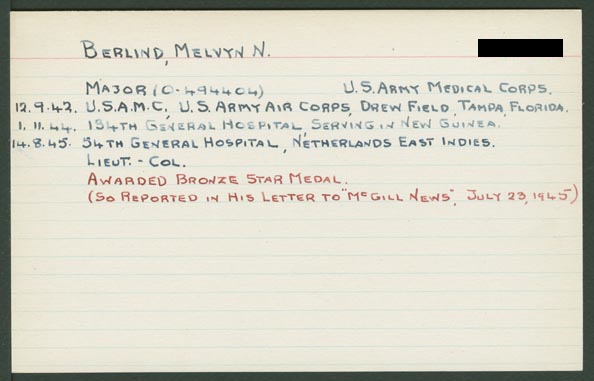 BERLIND, MELVYN N.
MAJOR (O-494404) U.S. ARMY MEDICAL CORPS.
12.9.42. U.S.A.M.C., U.S. ARMY AIR CORPS, DREW FIELD, TAMPA, FLORIDA.
1.11.44. 134TH GENERAL HOSPITAL, SERVING IN NEW GUINEA.
14.8.45. 54TH GENERAL HOSPITAL, NETHERLANDS EAST INDIES.
LIEUT.-COL.
AWARDED BRONZE STAR MEDAL.
(SO REPORTED IN HIS LETTER TO "McGILL NEWS", JULY 23, 1945)